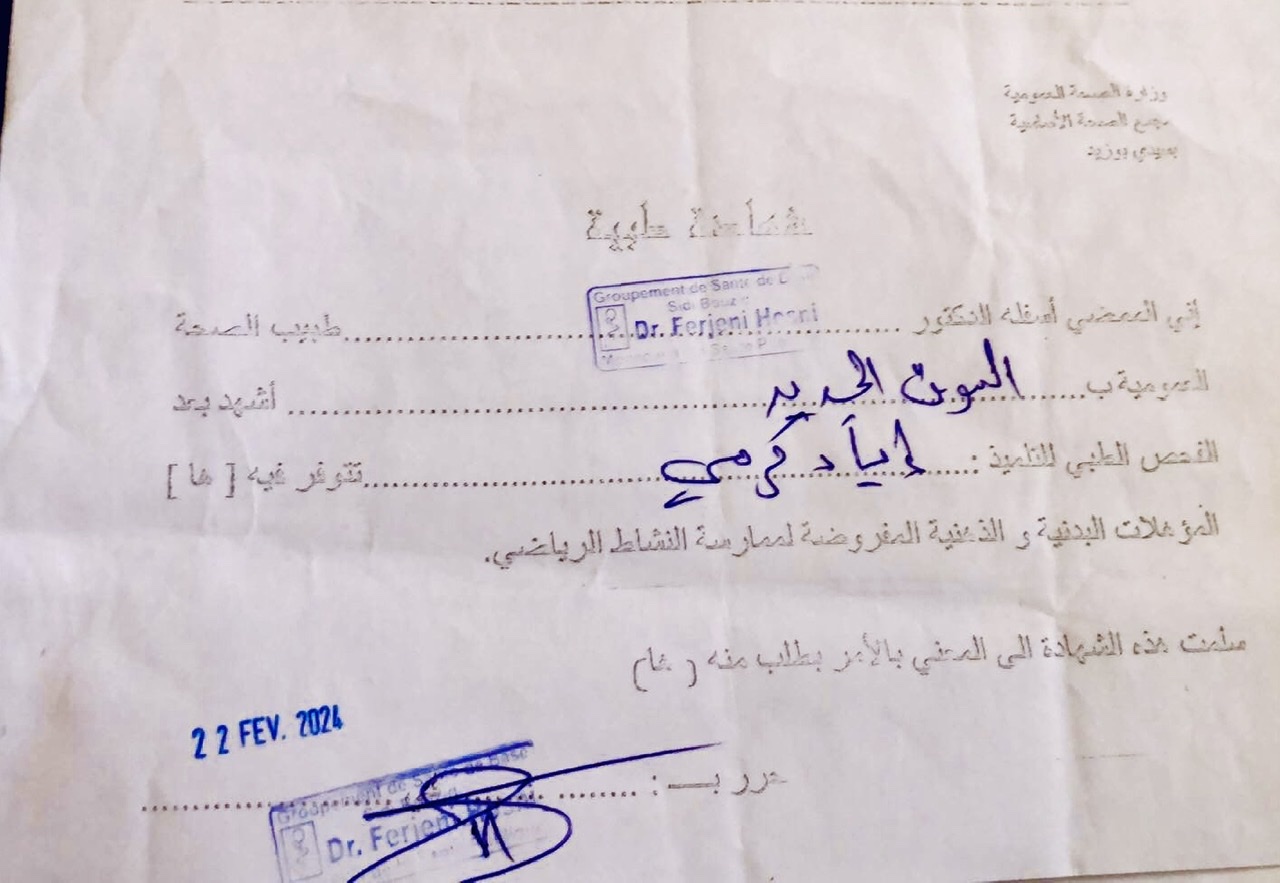 وزارة الصحة العمومية
مجمع الصحة الأساسية
بسيدي بوزيد
شهادة طبية
Groupement de Santé de
Sidi Bouz
Dr. Ferjeni Hosni
إني الممضي أسفله الدكتور ........................ طبيب الصحة
العمومية ب..... السوق الجديد ........................ أشهد بعد
الفحص الطبي للتلميذ : ..... إياد كرمي ........................ تتوفر فيه [ ها ]
المؤهلات البدنية و الذهنية المفروضة لممارسة النشاط الرياضي.
سلمت هذه الشهادة الى المعني بالأمر بطلب منه ( ها)
22 FEV. 2024
حرر بـــ : ........................
Groupement de Santé de Base
Dr. Ferjeni Hosni